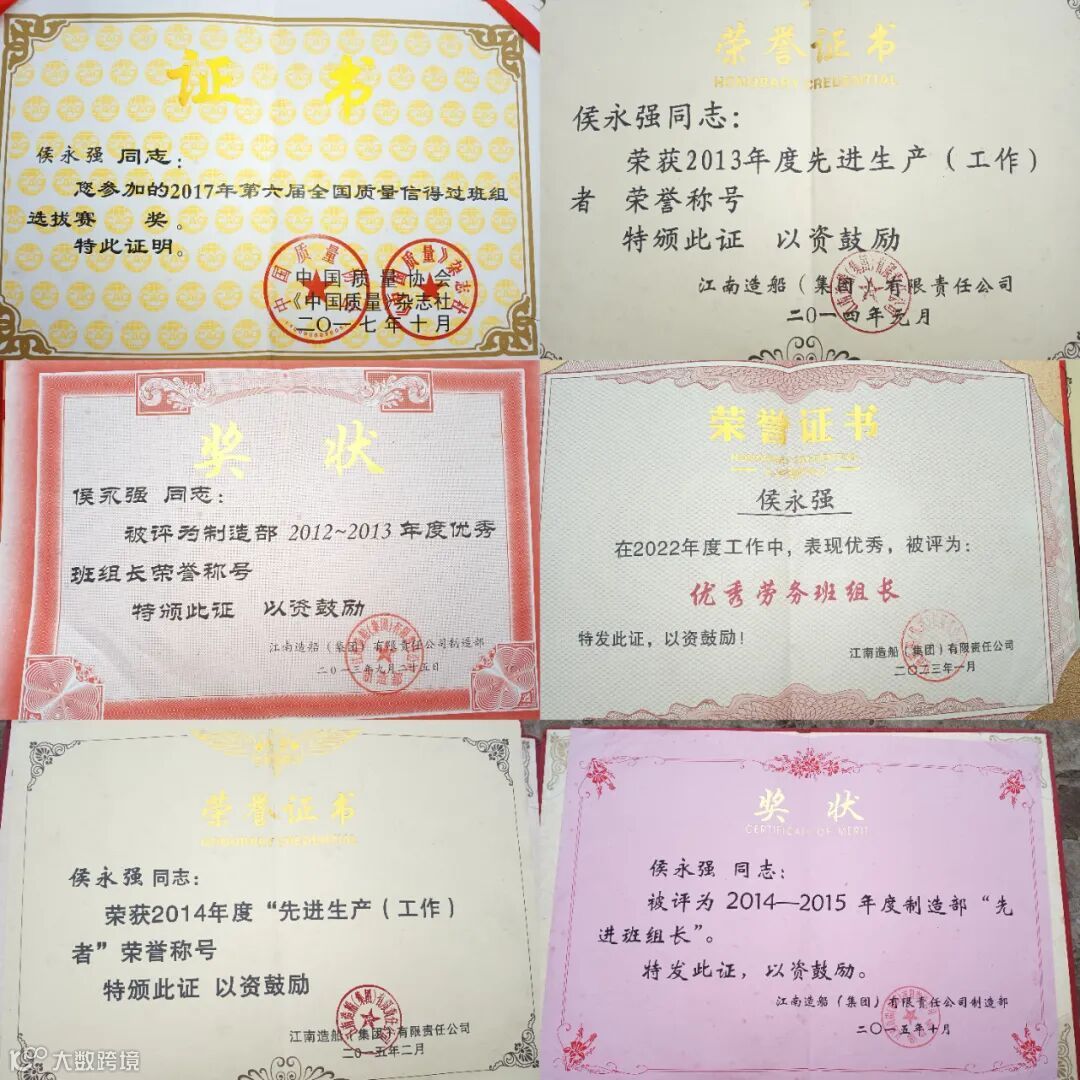 证 书
侯永强 同志：
您参加的2017年第六届全国质量信得过班组
选拔赛 奖。
特此证明。
中国质量协会
《中国质量》杂志社
二〇一七年十月
荣誉证书
HONORARY CREDENTIAL
侯永强同志：
荣获2013年度先进生产（工作）
者 荣誉称号
特颁此证 以资鼓励
江南造船（集团）有限责任公司
二〇一四年元月
奖 状
侯永强 同志：
被评为制造部 2012~2013 年度优秀
班组长荣誉称号
特颁此证 以资鼓励
江南造船（集团）有限责任公司制造部
二〇一三年九月二十五日
荣誉证书
侯永强
在2022年度工作中，表现优秀，被评为：
优秀劳务班组长
特发此证，以资鼓励！
江南造船（集团）有限责任公司
二〇二三年一月
荣誉证书
HONORARY CREDENTIAL
侯永强 同志：
荣获2014年度“先进生产（工作）
者”荣誉称号
特颁此证 以资鼓励
江南造船（集团）有限责任公司
二〇一五年二月
奖 状
CERTIFICATE OF MERIT
侯永强 同志：
被评为 2014—2015 年度制造部“先
进班组长”。
特发此证，以资鼓励。
江南造船（集团）有限责任公司制造部
二〇一五年十月
大数跨境